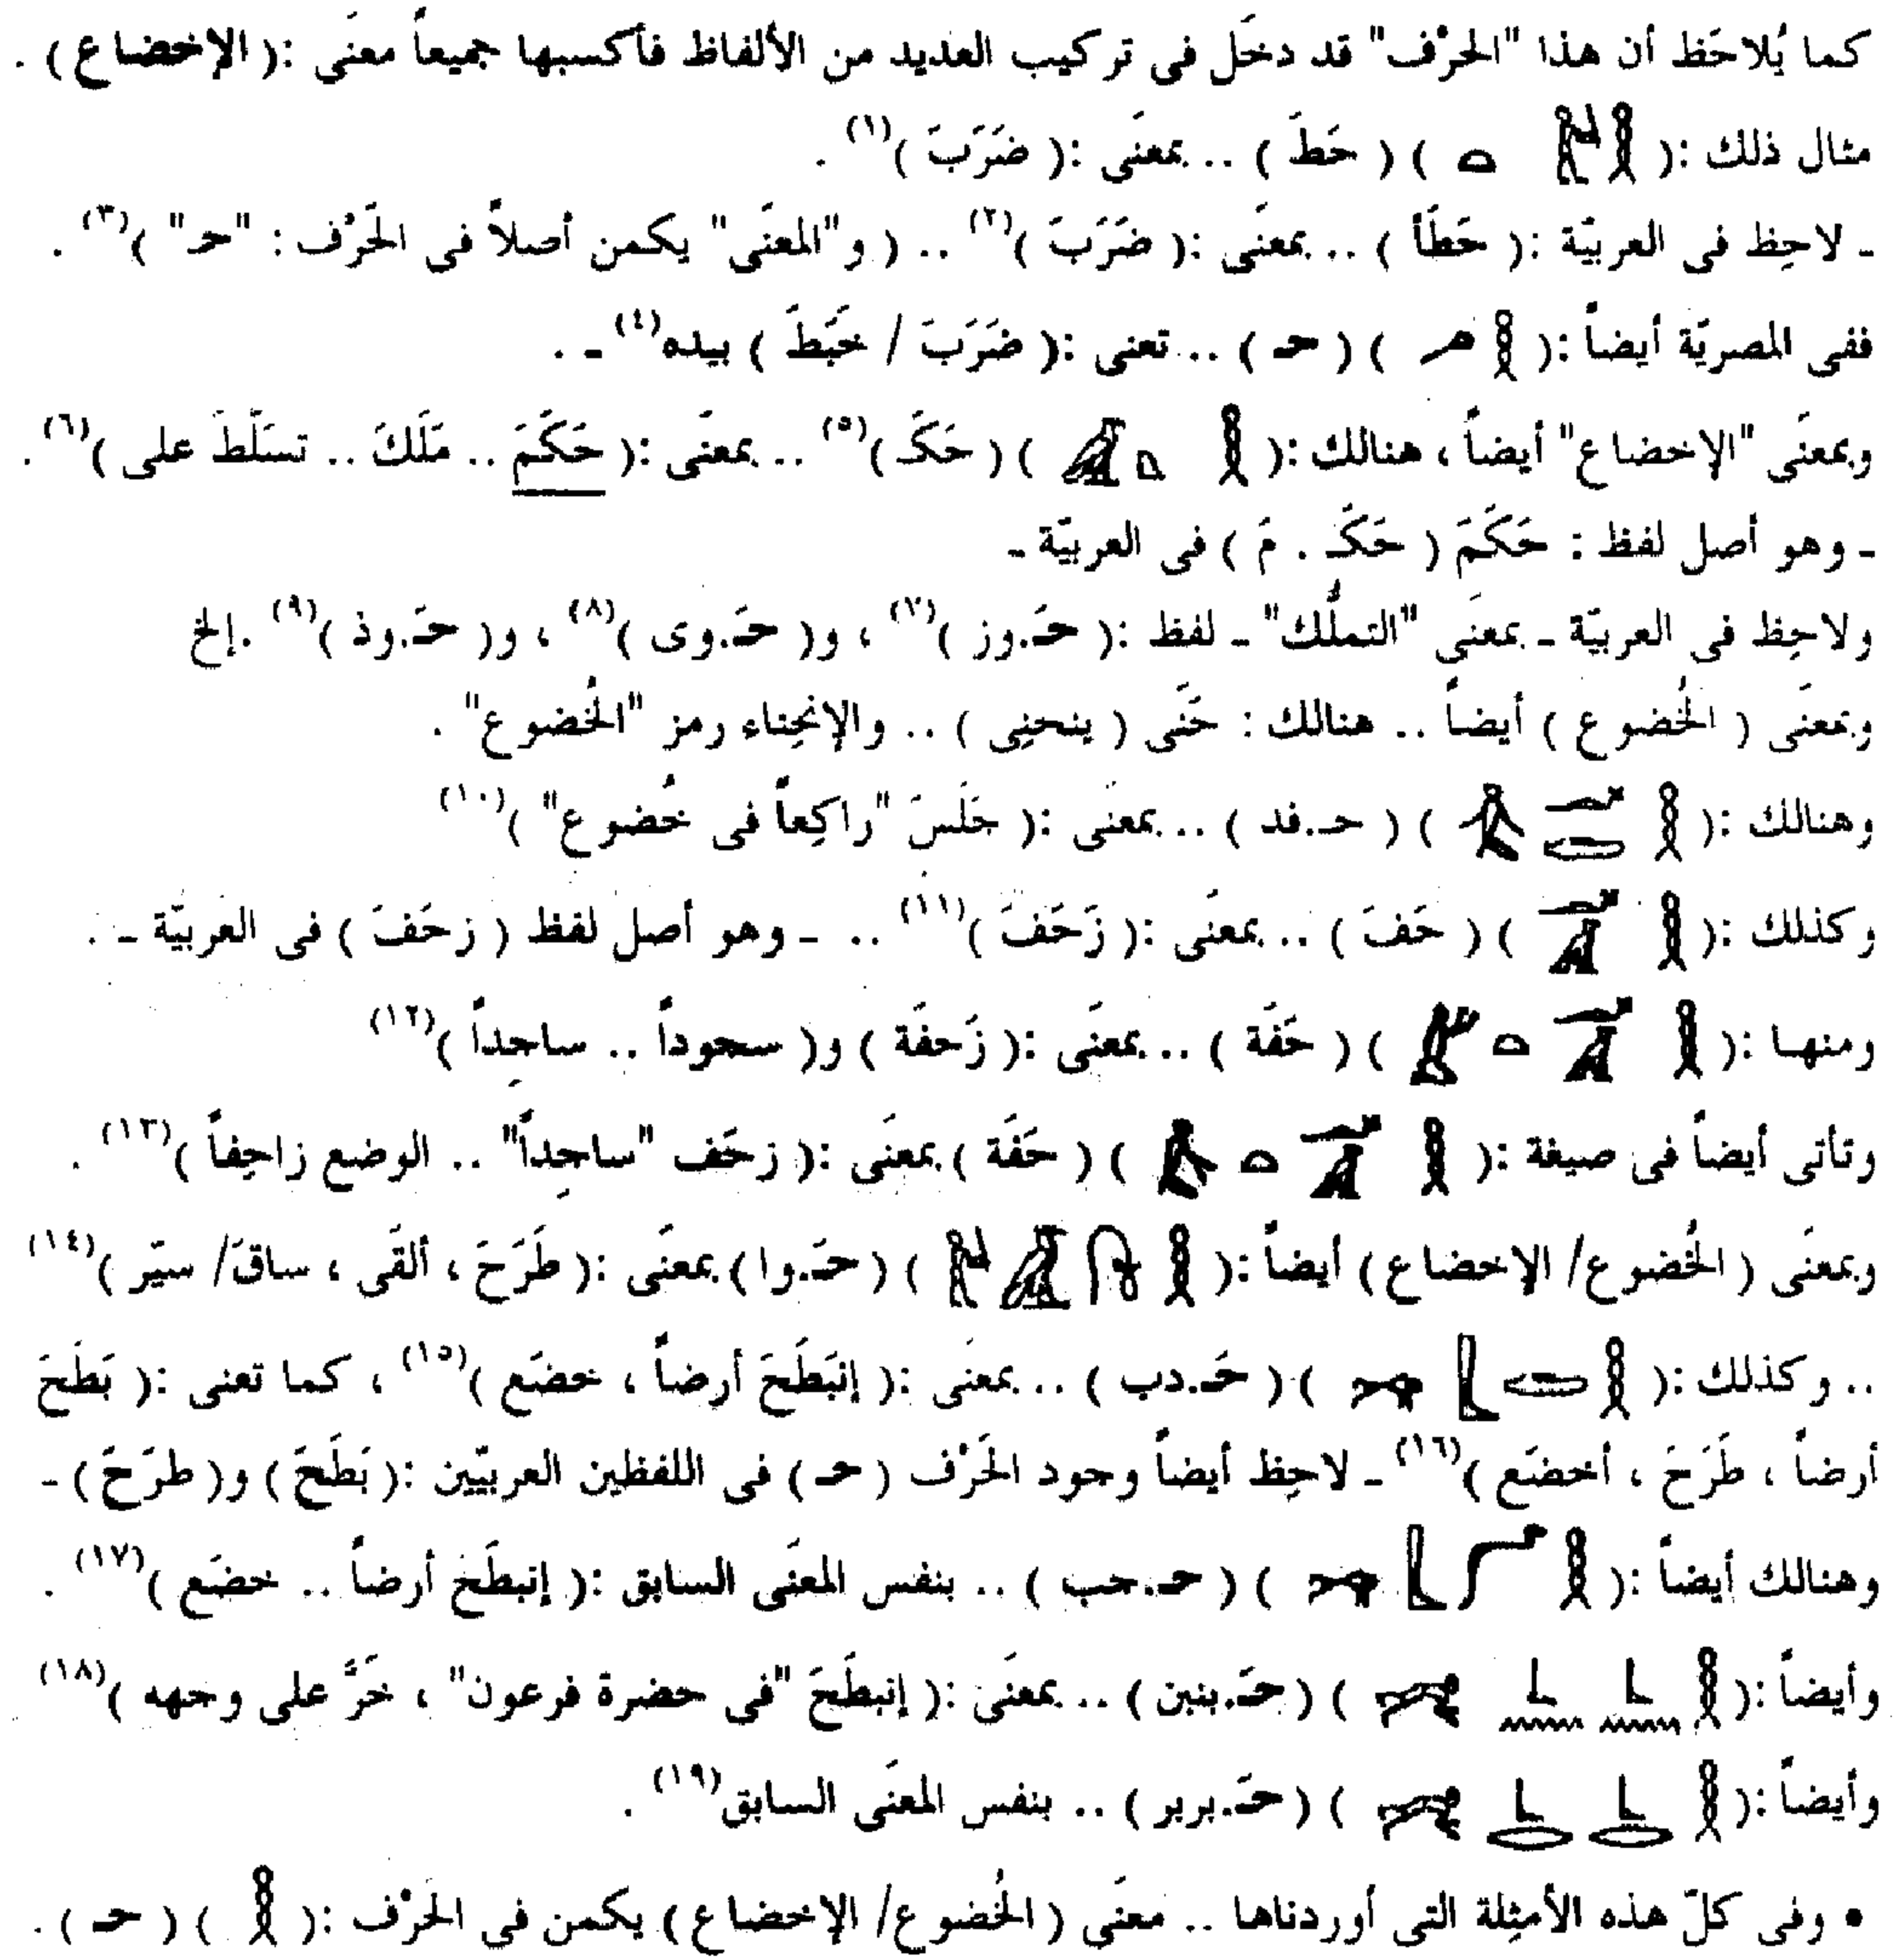 كما يُلاحَظ أن هذا "الحرْف" قد دخَل فى تركيب العديد من الألفاظ فأكسبها جميعاً معنَى :( الإخضاع ) .
مثال ذلك :( 𓎛 𓀜 𓏏 ) ( حَطَ ) .. بمعنَى :( ضَرَبَ )(١) .
ـ لاحِظ فى العربيّة :( حَطَأ ) .. بمعنَى :( ضَرَبَ )(٢) .. ( و "المعنَى" يكمن أصلاً فى الحَرْف : "حـ" )(٣) .
ففى المصريّة أيضاً :( 𓎛 ) ( حـ ) .. تعنى :( ضَرَبَ / خَبَطَ ) بيده(٤) ـ .
وبمعنَى "الإخضاع" أيضاً ، هنالك :( 𓎛 𓈎 𓀜 ) ( حَكَـ )(٥) .. بمعنَى :( حَكَمَ .. مَلَكَ .. تسَلّطَ على )(٦) .
ـ وهو أصل لفظ : حَكَمَ ( حَكَـ . مَ ) فى العربيّة ـ
ولاحِظ فى العربيّة ـ بمعنَى "التملُّك" ـ لفظ :( حَـ.وز )(٧) ، و( حَـ.وى )(٨) ، و( حَـ.وذ )(٩) .إلخ
وبمعنَى ( الخُضوع ) أيضاً .. هنالك : حَنَى ( ينحنِى ) .. والإنحِناء رمز "الخُضوع" .
وهنالك :( 𓎛 𓆑 𓂧 ) ( حـ.فد ) .. بمعنَى :( جَلَسَ "راكِعاً فى خُضوع" )(١٠)
وكذلك :( 𓎛 𓆑 ) ( حَفَ ) .. بمعنَى :( زَحَفَ )(١١) .. ـ وهو أصل لفظ ( زحَفَ ) فى العربيّة ـ .
ومنها :( 𓎛 𓆑 𓏏 ) ( حَفَة ) .. بمعنَى :( زَحفَة ) و( سجوداً .. ساجِداً )(١٢)
وتأتى أيضاً فى صيغة :( 𓎛 𓆑 𓏏 ) ( حَفَة ) بمعنَى :( زحَف "ساجِداً" .. الوضع زاحِفاً )(١٣) .
وبمعنَى ( الخُضوع/ الإخضاع ) أيضاً :( 𓎛 𓍯 𓀜 ) ( حَـ.وا ) بمعنَى :( طَرَحَ ، ألقَى ، ساقَ/ سيّر )(١٤)
.. وكذلك :( 𓎛 𓂧 𓃀 ) ( حَـ.دب ) .. بمعنَى :( إنبَطَحَ أرضاً ، خضَع )(١٥) ، كما تعنى :( بَطَحَ
أرضاً ، طَرَحَ ، أخضَع )(١٦) ـ لاحِظ أيضاً وجود الحَرْف ( حـ ) فى اللفظين العربيّين :( بَطَحَ ) و( طرَحَ ) ـ
وهنالك أيضاً :( 𓎛 𓃀 ) ( حـ.حب ) .. بنفس المعنَى السابق :( إنبطَحَ أرضاً .. خضَع )(١٧) .
وأيضاً :( 𓎛 𓃀 𓈖 𓃀 𓈖 ) ( حَـ.بنبن ) .. بمعنَى :( إنبطَحَ "فى حضرة فرعون" ، خَرَّ على وجهه )(١٨)
وأيضاً :( 𓎛 𓃀 𓂋 𓃀 𓂋 ) ( حَـ.بربر ) .. بنفس المعنَى السابق(١٩) .
• وفى كلّ هذه الأمثِلة التى أوردناها .. معنَى ( الخُضوع/ الإخضاع ) يكمن فى الحَرْف :( 𓎛 ) ( حـ ) .